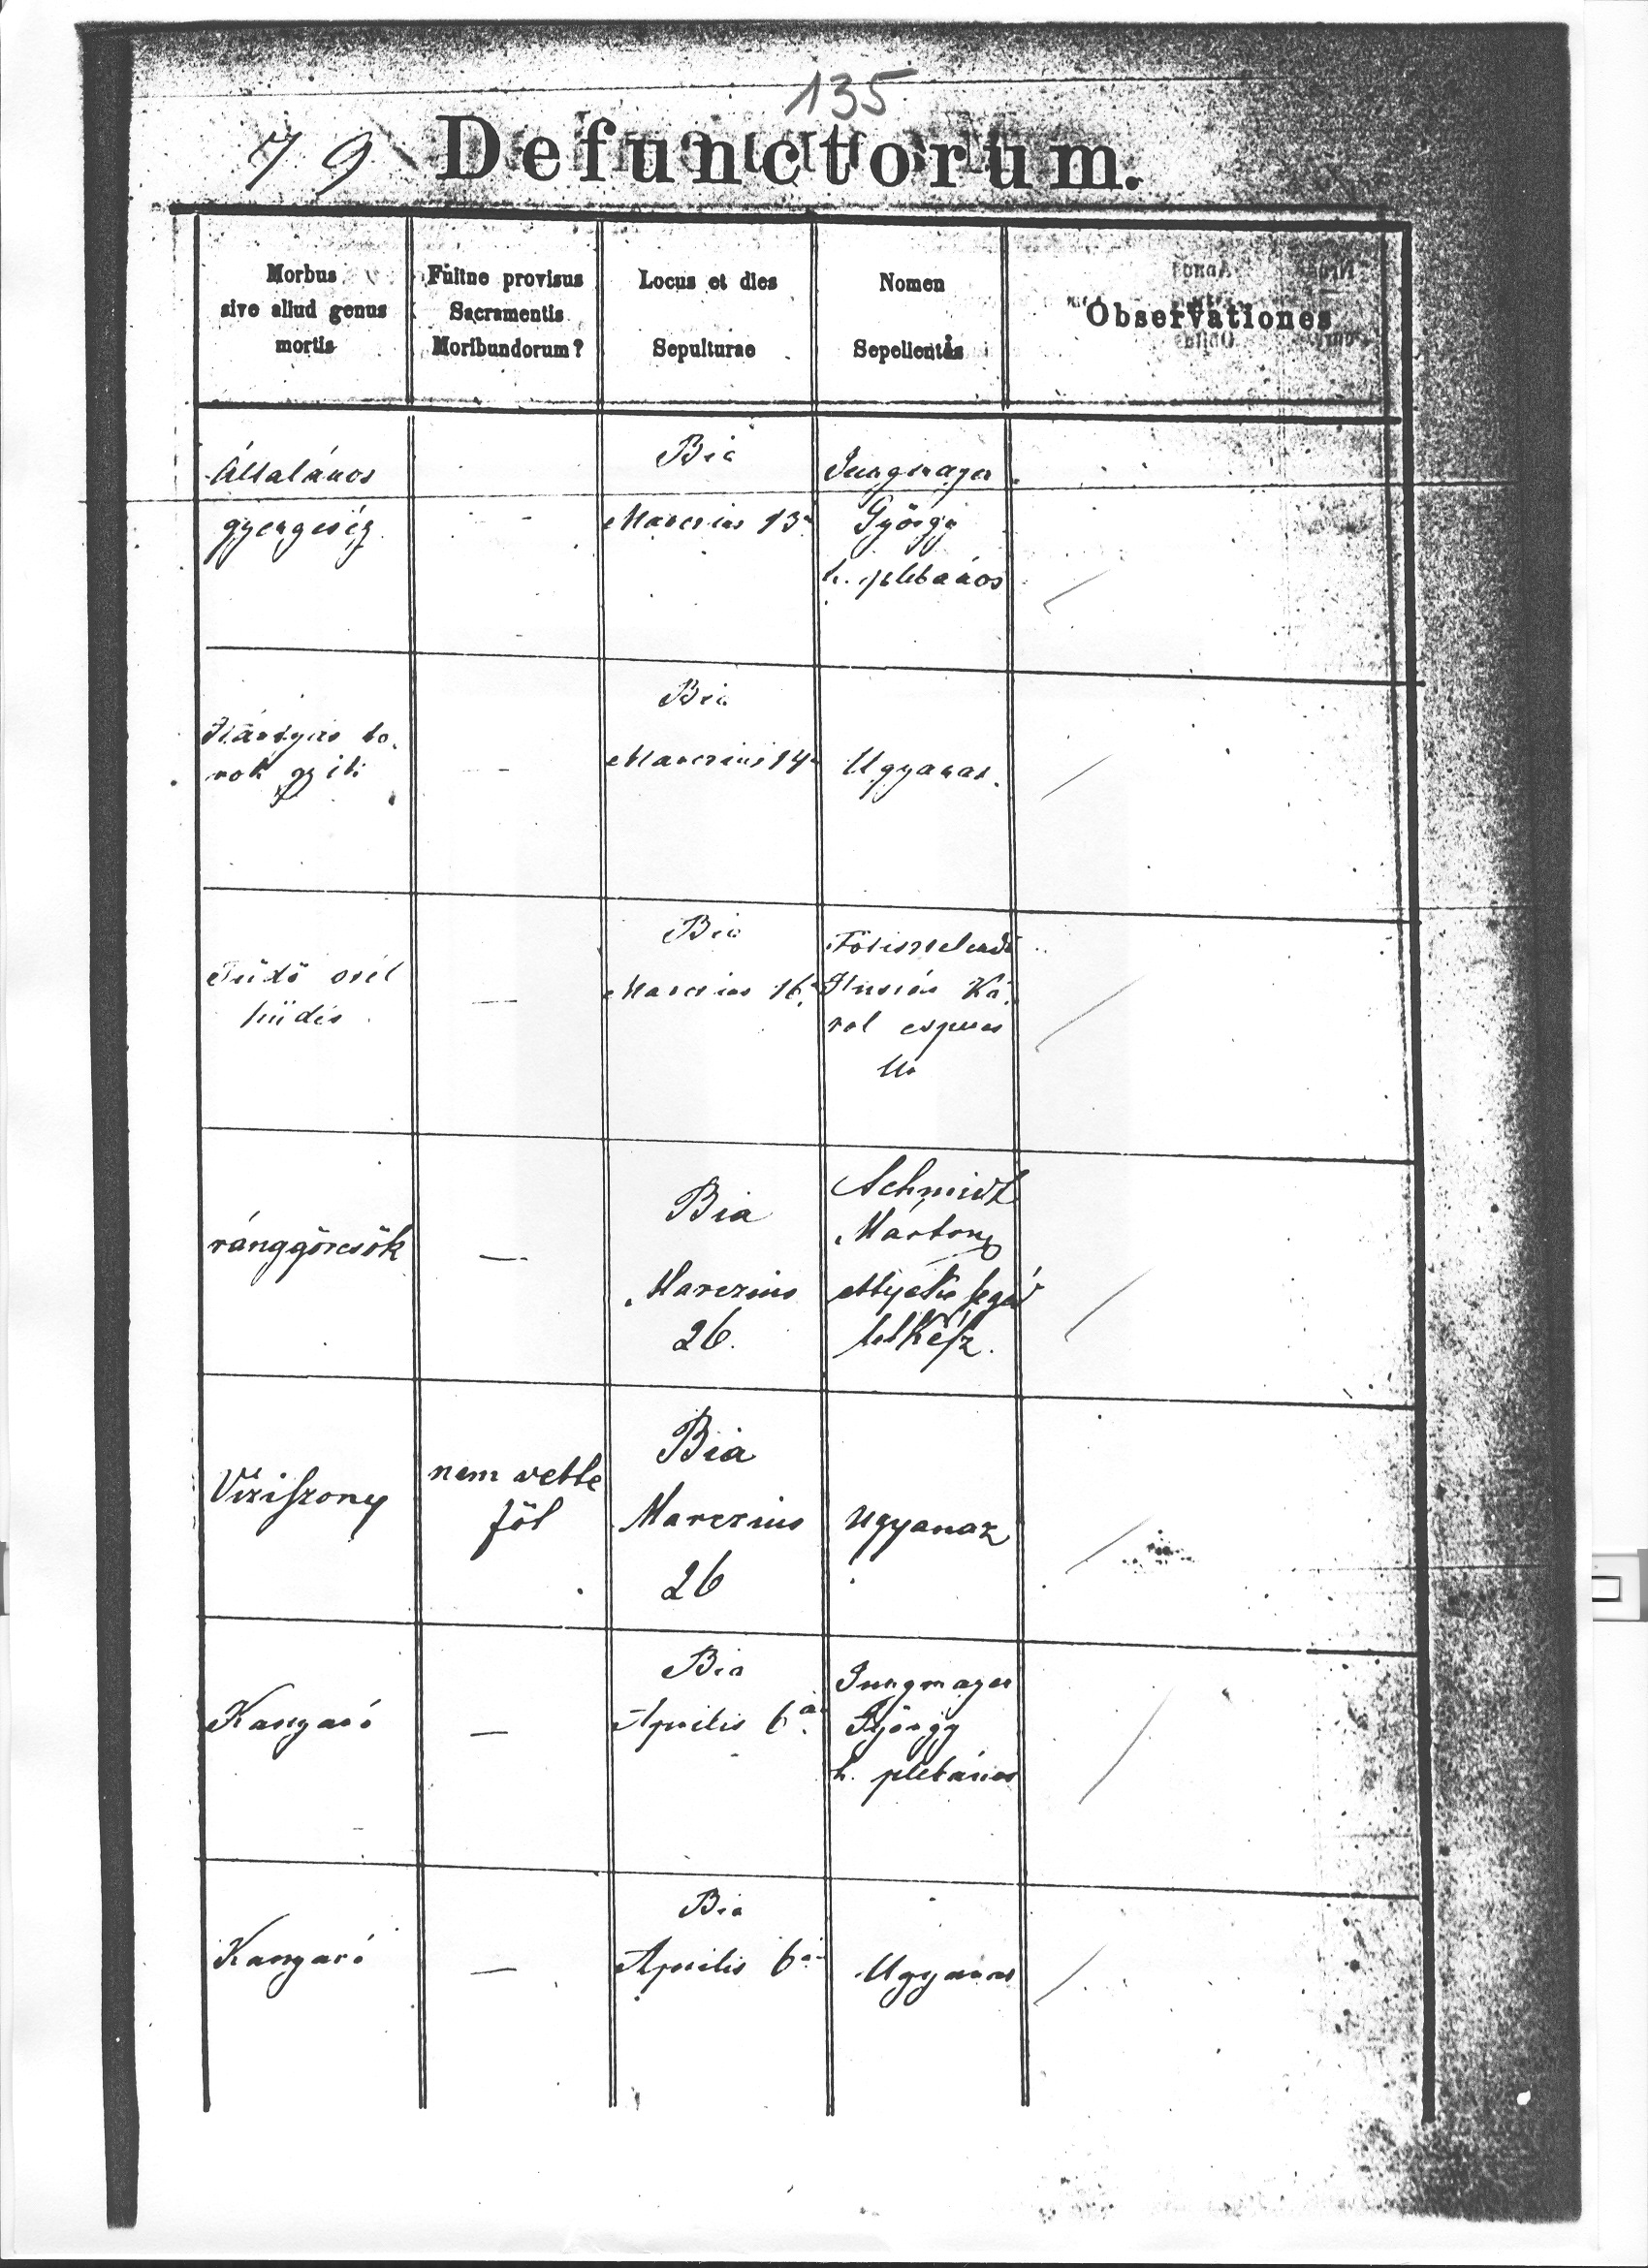 135
79 Defunctorum.
Morbus
sive aliud genus
mortis
Fuitne provisus
Sacramentis
Moribundorum?
Locus et dies
Sepulturae
Nomen
Sepelientis
Observationes
Általános
gyengeség
-
Bia
Marczius 13á
Jungmayer
György
h. plébános
Hártyás to-
rok gyík
-
Bia
Marczius 14á
Ugyanaz.
Tüdő szél
hüdés
-
Bia
Marczius 16á
Főtisztelendő
Ká-
rol esperes
Úr
ránggörcsök
-
Bia
Marczius
26.
Schmidt
Márton
segéd
lelkész.
Viziszony
nem vette
föl
Bia
Marczius
26
ugyanaz
Kanyaró
-
Bia
Aprilis 6á
Jungmayer
György
h. plébános
Kanyaró
-
Bia
Aprilis 6á
Ugyanaz